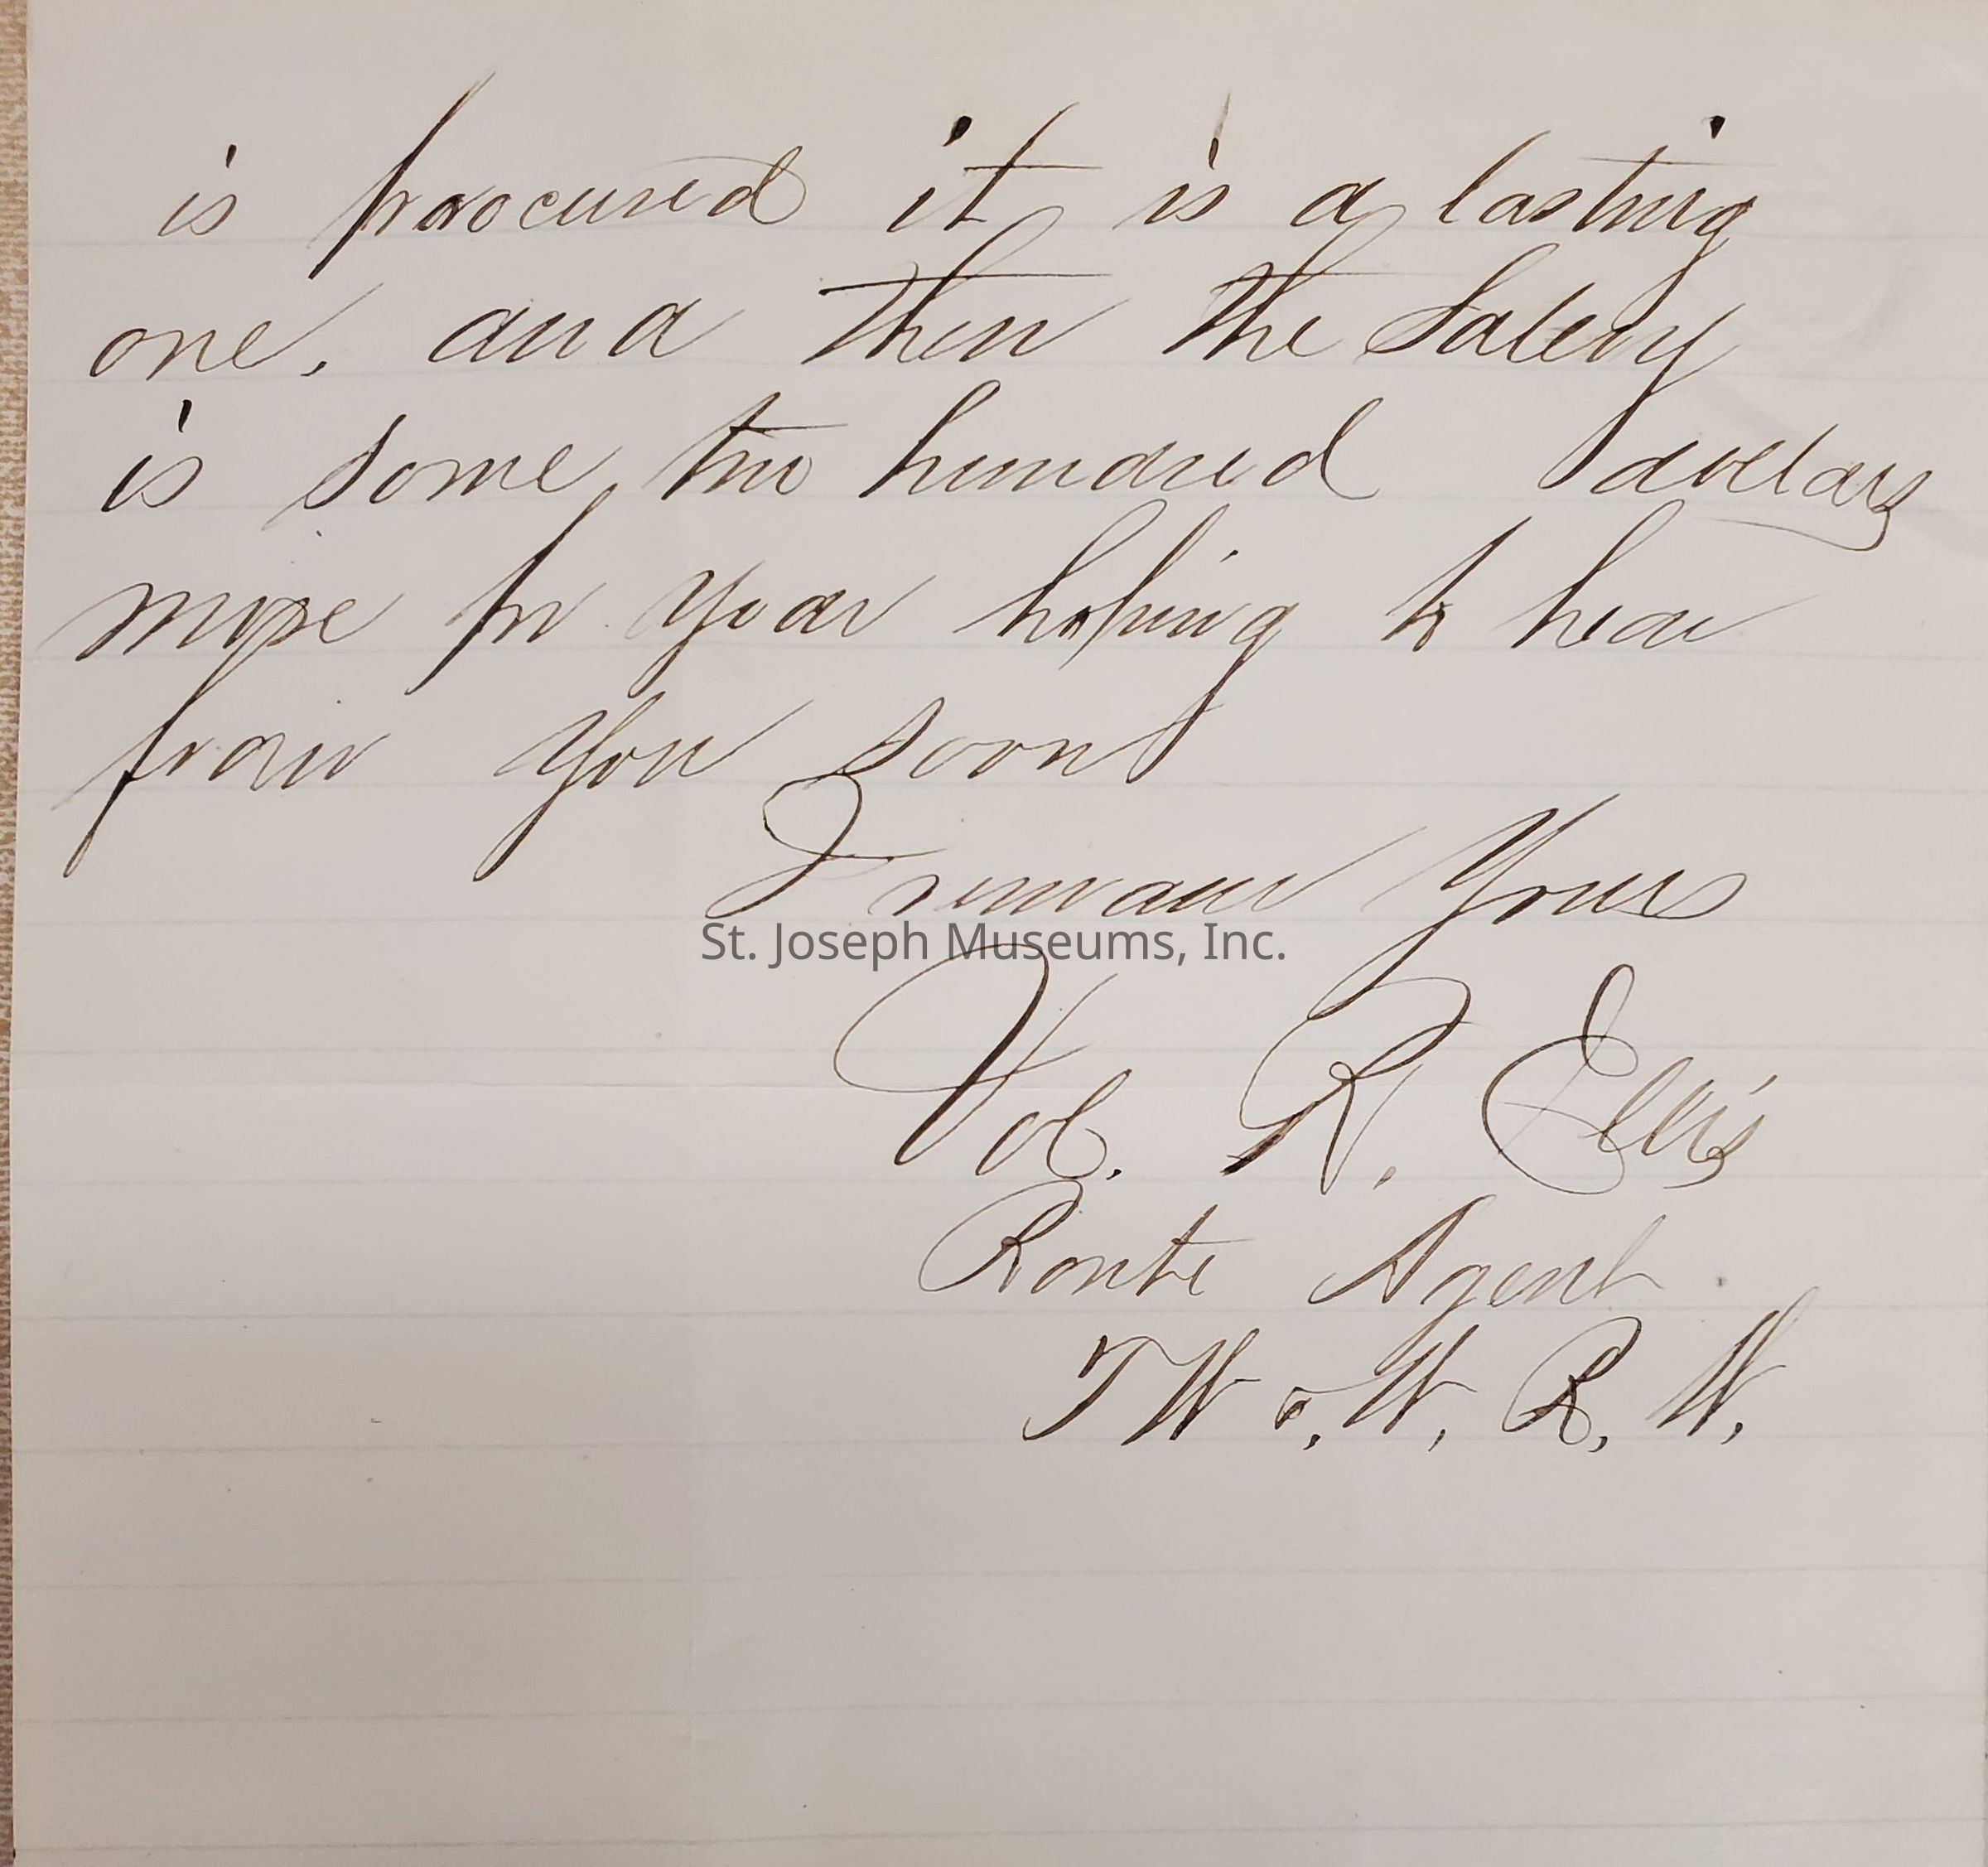 is procured it is a lasting
one, and then the Salery
is some two hundred dollars
more pr year hoping to hear
from you soon
I remain Yours
St. Joseph Museums, Inc.
Vol. R. Ellis
Route Agent
T W & W. R. W.